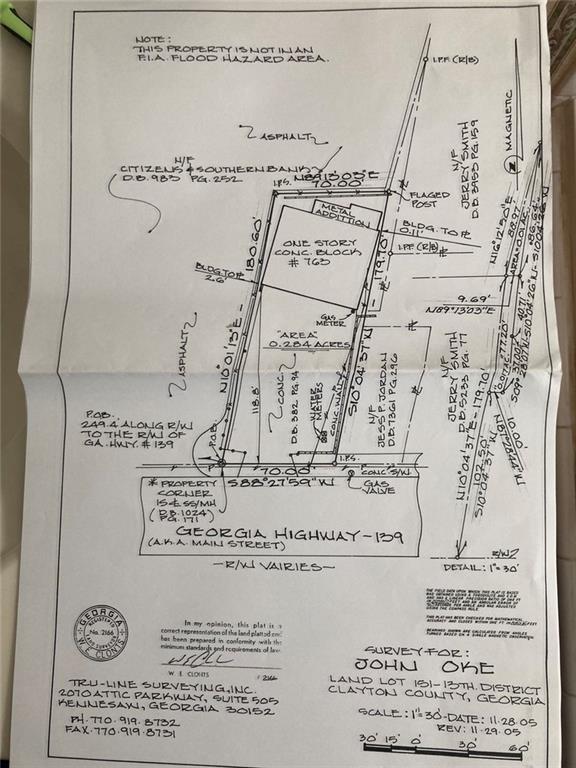 NOTE:
THIS PROPERTY IS NOT IN AN
F.I.A. FLOOD HAZARD AREA.
I.P.F. (R/B)
MAGNETIC
N/F
JERRY SMITH
D.B. 3953 PG. 159
ASPHALT
N/F
CITIZENS & SOUTHERN BANK
D.B. 983 PG. 252
N89°13'03"E
I.P.S.
70.00'
FLAGED
POST
METAL
ADDITION
BLDG. TO ℄
0.11'
180.60'
179.70'
I.P.F. (R/B)
ONE STORY
CONC. BLOCK
# 763
BLDG. TO ℄
2.6'
N16°12'50"E
9.69'
N89°13'03"E
GAS
METER
"AREA"
0.284 ACRES
ASPHALT
N10°01'13"E
118.8'
CONC.
D.B. 382 PG. 94
METERS
CONC. WALL
S10°04'37"W
N/F
JESS P. JORDAN
D.B. 7361 PG. 296
N/F
JERRY SMITH
D.B. 5253 PG. 77
N10°04'37"E - 179.70'
102.50'
S10°04'37"W
P.O.B.
249.4 ALONG R/W
TO THE R/W OF
GA. HWY. # 139
P.O.B.
I.P.S.
70.00'
S88°27'59"W
CONC. S/W
GAS
VALVE
* PROPERTY
CORNER
IS ℄ SS/MH
(D.B. 1024)
(PG. 171)
GEORGIA HIGHWAY-139
(A.K.A. MAIN STREET)
-R/W VAIRIES-
R/W
DETAIL: 1"=30'
GEORGIA
REGISTERED
No. 2166
LAND SURVEYOR
W. E. CLONTS
In my opinion, this plat is a
correct representation of the land platted and
has been prepared in conformity with the
minimum standards and requirements of law.
W E CLONTS
2166
TRU-LINE SURVEYING, INC.
2070 ATTIC PARKWAY, SUITE 505
KENNESAW, GEORGIA 30152
PH. 770.919.8732
FAX. 770.919.8731
SURVEY FOR:
JOHN OKE
LAND LOT 151-13TH. DISTRICT
CLAYTON COUNTY, GEORGIA
SCALE: 1"=30'-DATE: 11.28.05
REV: 11.29.05
30' 15' 0 30' 60'